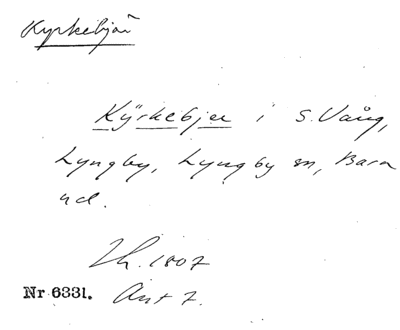 Kyrkebjär
Kÿrkebjer i S. Vång,
Lyngby, Lyngby sn, Bara
hd.
Lh. 1807
Nr 6331. Akt 7.